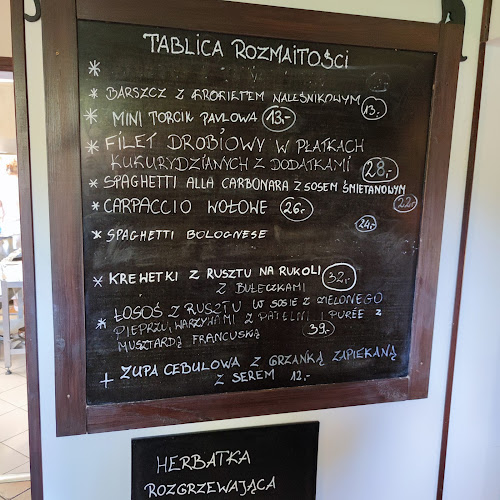 TABLICA ROZMAITOŚCI
*
* BARSZCZ Z KROKIETEM NALEŚNIKOWYM 13,-
* MINI TORCIK PAVLOWA 13,-
* FILET DROBIOWY W PŁATKACH
KUKURYDZIANYCH Z DODATKAMI 28,-
* SPAGHETTI ALLA CARBONARA Z SOSEM ŚMIETANOWYM 22,-
* CARPACCIO WOŁOWE 26,-
* SPAGHETTI BOLOGNESE 24,-
* KREWETKI Z RUSZTU NA RUKOLI 32,-
Z BUŁECZKAMI
* ŁOSOŚ Z RUSZTU W SOSIE Z ZIELONEGO
PIEPRZU, WARZYWAMI Z PATELNI I PURÉE Z
MUSZTARDĄ FRANCUSKĄ 39,-
+ ZUPA CEBULOWA Z GRZANKĄ ZAPIEKANĄ
Z SEREM 12,-
HERBATKA
ROZGRZEWAJĄCA